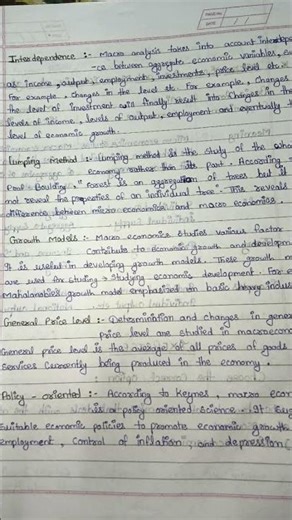 Interdependence :- Macro analysis takes into account interdepe
-ce between aggregate economic variables, su
as income, output, employment, investments, price level etc.
For example, Changes in the level etc For example, Changes
the level of investment will finally result into Changes in the
levels of income, levels of output, employment and eventually t
level of economic growth.
Lumping Method :- Lumping method is the study of the who
economy rather than its part. According
Prof Boulding, "Forest is an aggregation of trees but it
not reveal the properties of an individual tree" This reveals
difference between micro economics and macro economics.
Growth Models :- Macro economics Studies various factor
Contribute to economic growth and developm
It is useful in developing growth models. These growth m
are used for studying economic development. For e
Mahalanobis growth model emphasized on basic heavy indus
General Price level :- Determination and changes in gener
price level are studied in macroecono
General price level is the average of all prices of goods
Services Currently being produced in the economy.
Policy - oriented :- According to Keynes, macro econ
is a policy oriented science. It sug
Suitable economic policies to promote economic growth
employment, control of inflation, and depression